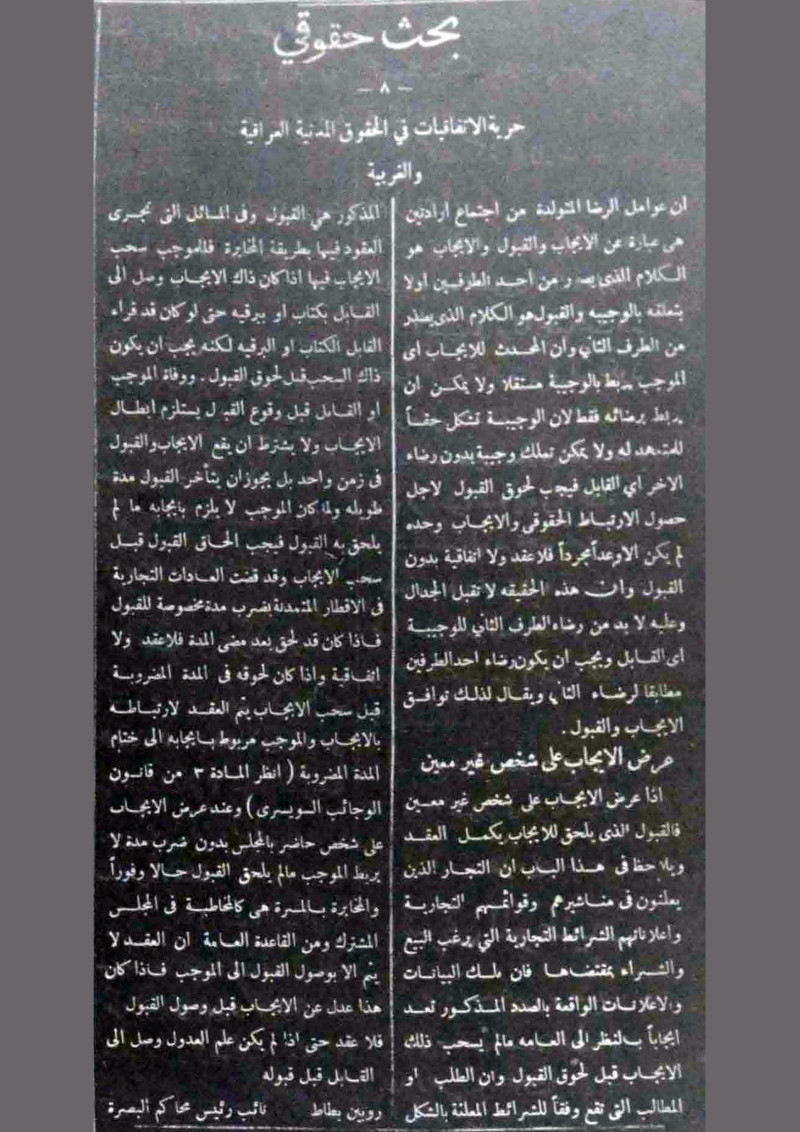 بحث حقوقي
— ٨ —
حرية الاتفاقيات في الحقوق المدنية العراقية
والغربية
ان عوامل الرضا المتولدة من اجتماع ارادتين
هى عبارة عن الايجاب والقبول والايجاب هو
الكلام الذى يصدر من احد الطرفين اولا
بتعلقه بالوجيبه والقبول هو الكلام الذى يصدر
من الطرف الثاني وان المحدث للايجاب اى
الموجب يربط بالوجيبة مستقلا ولا يمكن ان
يربط برضائه فقط لان الوجيبة تشكل حقاً
للمتعهد له ولا يمكن تملك وجيبة بدون رضاء
الاخر اي القابل فيجب لحوق القبول لاجل
حصول الارتباط الحقوقى والايجاب وحده
لم يكن الا وعداً مجرداً فلا عقد ولا اتفاقية بدون
القبول وان هذه الحقيقه لا تقبل الجدال
وعليه لا بد من رضاء الطرف الثاني للوجيبة
اى القابل ويجب ان يكون رضاء احد الطرفين
مطابقا لرضاء الثاني ويقال لذلك توافق
الايجاب والقبول .
عرض الايجاب على شخص غير معين
اذا عرض الايجاب على شخص غير معين
فالقبول الذى يلحق للايجاب يكمل العقد
ويلاحظ فى هذا الباب ان التجار الذين
يعلنون فى مناشيرهم وقوائمهم التجارية
واعلاناتهم الشرائط التجارية التي يرغب البيع
والشراء بمقتضاها فان تلك البيانات
والاعلانات الواقعة بالصدد المذكور تعد
ايجاباً بالنظر الى العامه مالم يسحب ذلك
الايجاب قبل لحوق القبول وان الطلب او
المطالب التى تقع وفقاً للشرائط المعلنة بالشكل
المذكور هي القبول وفى المسائل التى تجرى
العقود فيها بطريقة المخابرة فللموجب سحب
الايجاب فيها اذا كان ذاك الايجاب وصل الى
القابل بكتاب او ببرقيه حتى لو كان قد قراء
القابل الكتاب او البرقيه لكنه يجب ان يكون
ذاك السحب قبل لحوق القبول . ووفاة الموجب
او القابل قبل وقوع القبول يستلزم ابطال
الايجاب ولا يشترط ان يقع الايجاب والقبول
فى زمن واحد بل يجوز ان يتأخر القبول مدة
طويله ولما كان الموجب لا يلزم بايجابه ما لم
يلحق به القبول فيجب الحاق القبول قبل
سحب الايجاب وقد قضت العادات التجارية
فى الاقطار المتمدنة بضرب مدة مخصوصة للقبول
فاذا كان قد لحق بعد مضى المدة فلا عقد ولا
اتفاقية واذا كان لحوقه فى المدة المضروبة
قبل سحب الايجاب يتم العقد لارتباطه
بالايجاب والموجب مربوط بايجابه الى ختام
المدة المضروبة ( انظر المادة ٣ من قانون
الوجائب السويسرى ) وعند عرض الايجاب
على شخص حاضر بالمجلس بدون ضرب مدة لا
يربط الموجب مالم يلحق القبول حالا وفوراً
والمخابرة بالمسرة هى كالمخاطبة فى المجلس
المشترك ومن القاعدة العامة ان العقد لا
يتم الا بوصول القبول الى الموجب فاذا كان
هذا عدل عن الايجاب قبل وصول القبول
فلا عقد حتى اذا لم يكن علم العدول وصل الى
القابل قبل قبوله
روبين بطاط نائب رئيس محاكم البصرة